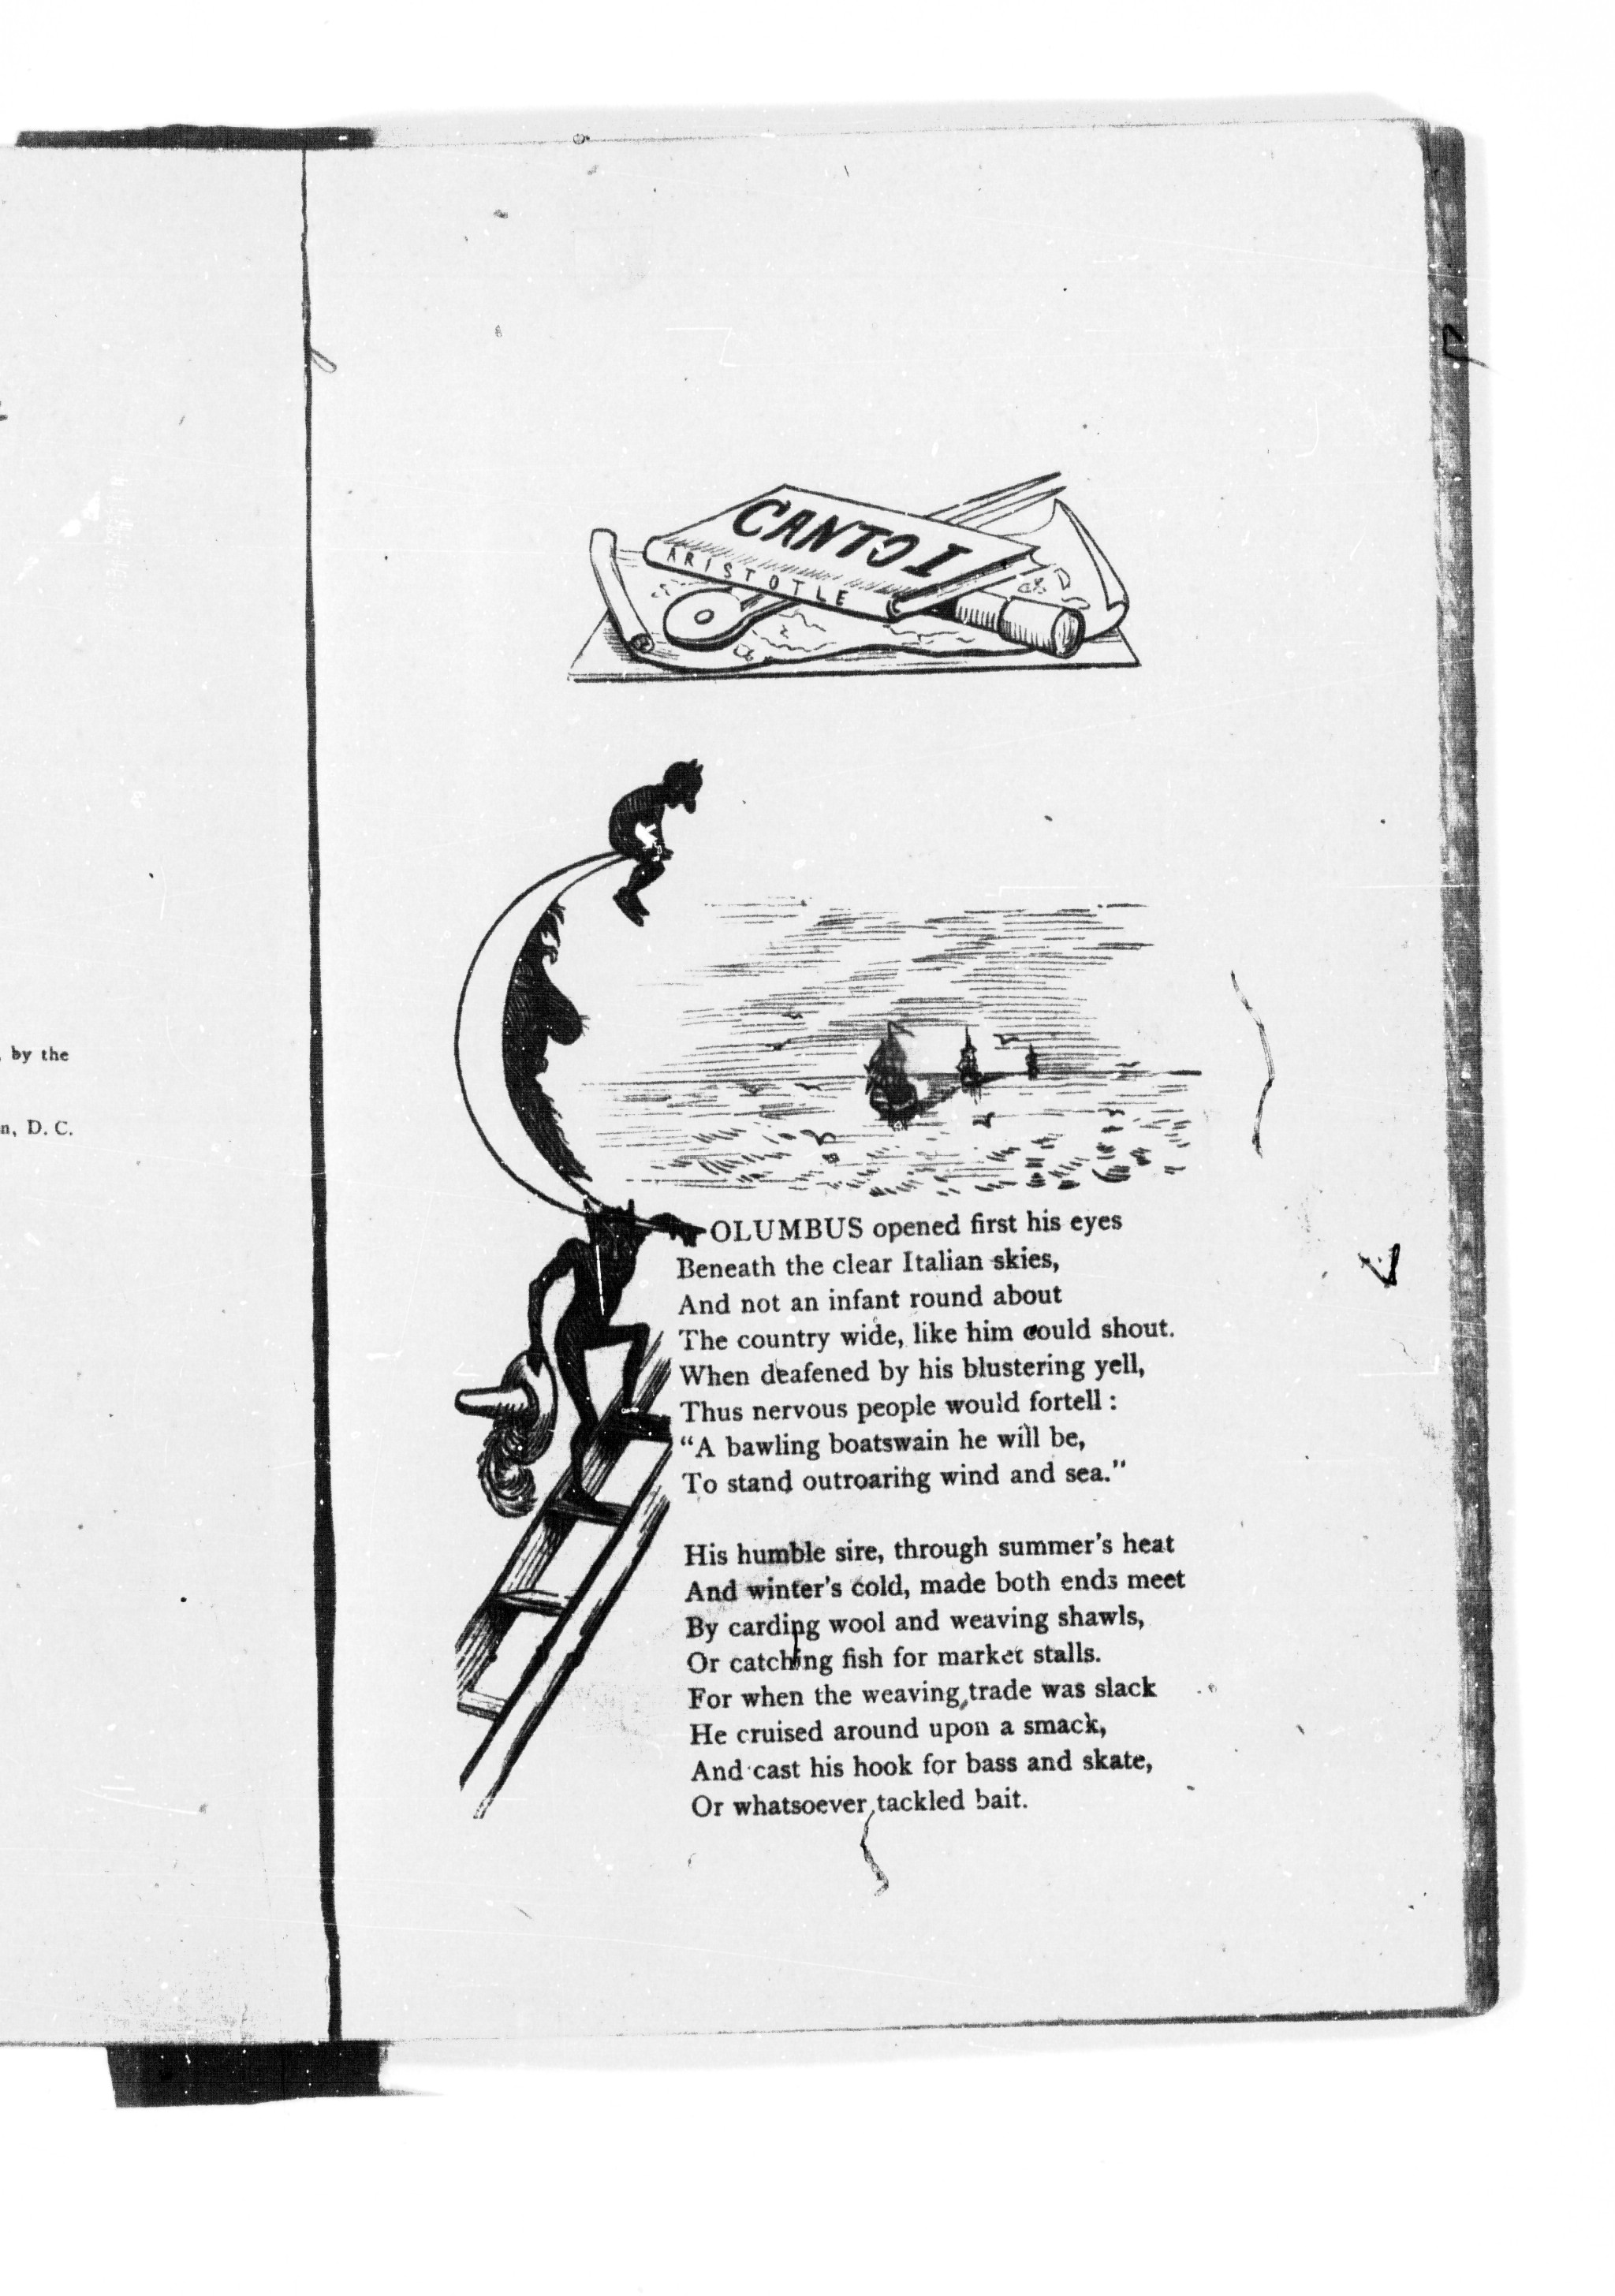 , by the
n, D. C.
CANTO I
ARISTOTLE
COLUMBUS opened first his eyes
Beneath the clear Italian skies,
And not an infant round about
The country wide, like him could shout.
When deafened by his blustering yell,
Thus nervous people would fortell :
“A bawling boatswain he will be,
To stand outroaring wind and sea.”
His humble sire, through summer’s heat
And winter’s cold, made both ends meet
By carding wool and weaving shawls,
Or catching fish for market stalls.
For when the weaving trade was slack
He cruised around upon a smack,
And cast his hook for bass and skate,
Or whatsoever tackled bait.